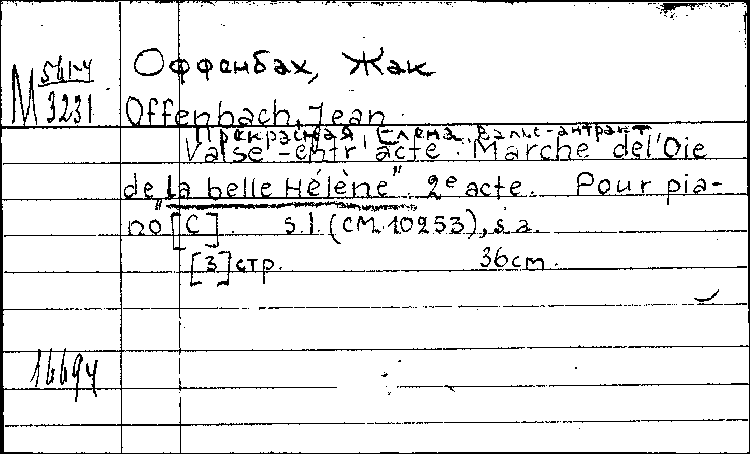 Оффенбах, Жак
М 561-4
3231
Offenbach, Jean
Прекрасная Елена. Вальс-антракт
Valse-entr'acte. Marche del'Oie
de "la belle Hélène". 2e acte. Pour pia-
no [C]. s.l. (CM.10253), s.a.
[3] стр. 36cm.
16694